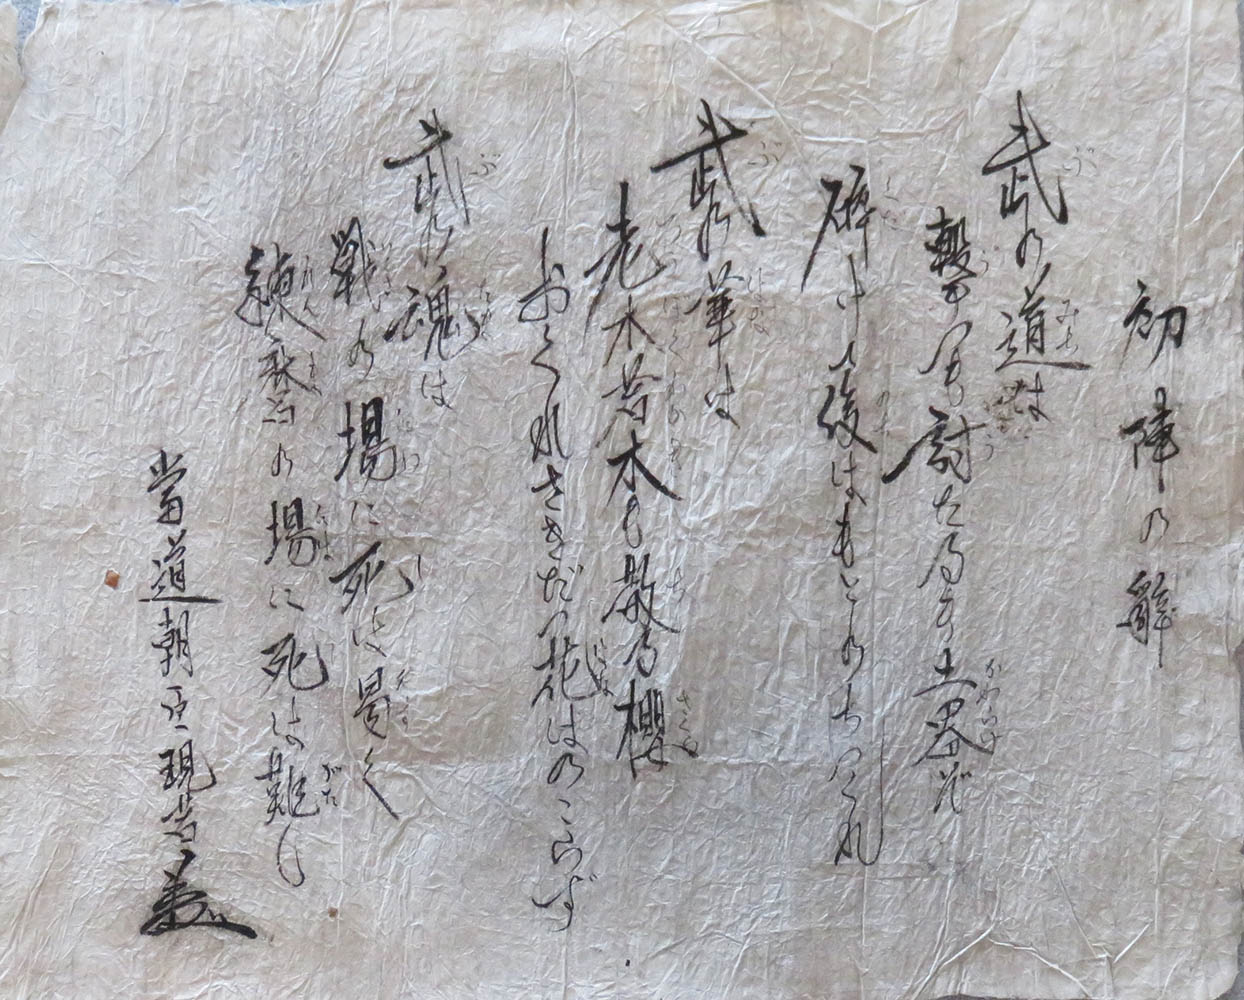 初陣の辭
武の道は
撃つも討たるゝも土器ぞ
碎け後はもとのちつくれ
武の華は
老木若木も散る櫻
おくれさきだつ花はのこらず
武の魂は
戦の場に死は易く
練の場に死は難し
當道朝臣現